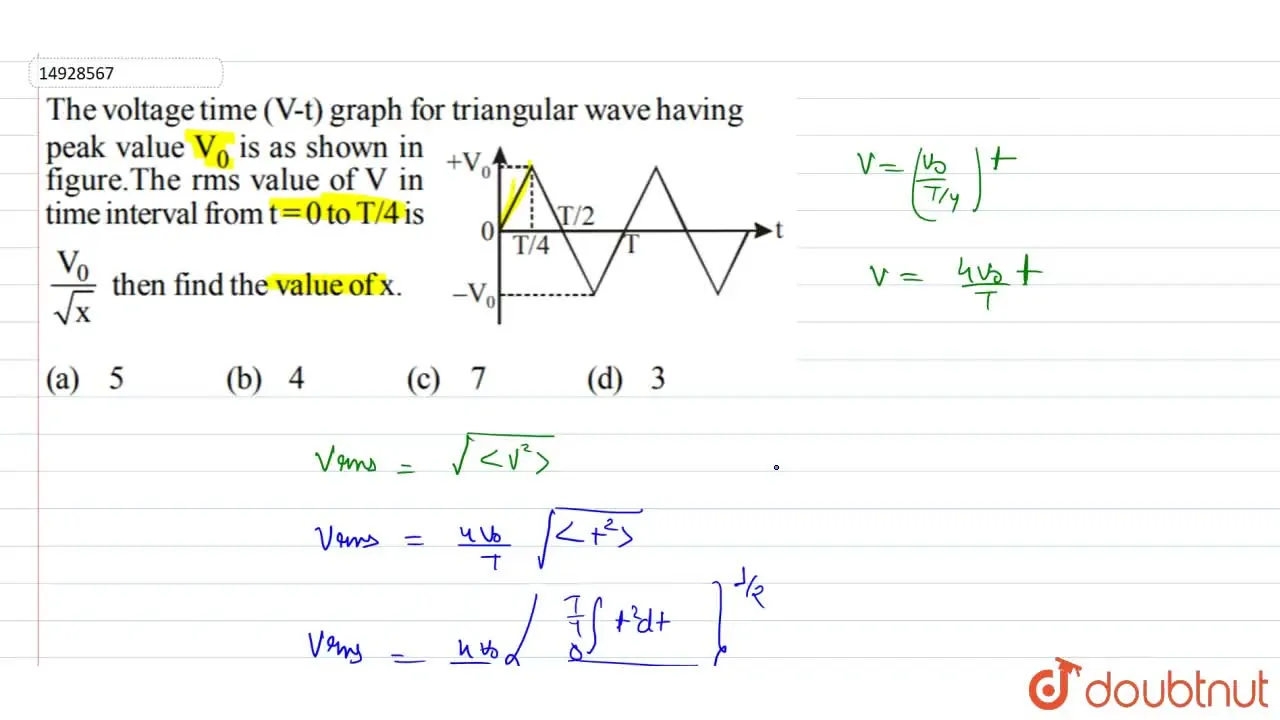 14928567
The voltage time (V-t) graph for triangular wave having
peak value V₀ is as shown in
figure.The rms value of V in
time interval from t = 0 to T/4 is
V₀/√x then find the value of x.
+V₀
0
–V₀
T/4
T/2
T
t
(a) 5 (b) 4 (c) 7 (d) 3
V = (V₀/T/4) t
V = 4V₀/T t
Vrms = √<V²>
Vrms = 4V₀/T √<t²>
Vrms = 4V₀ ( ∫₀^T/4 t²dt )^1/2
doubtnut